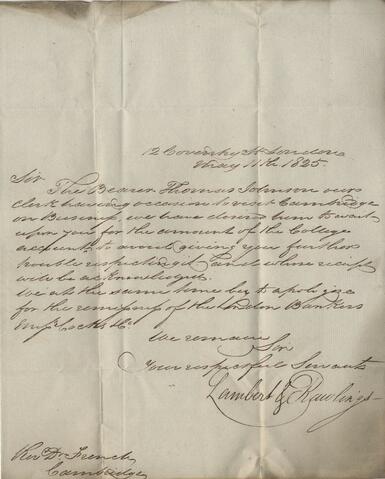 12 Coventry St London
May 11th 1825.
Sir
The Bearer Thomas Johnson our
clerk having occasion to visit Cambridge
on Business, we have desired him to wait
upon you for the amount of the College
account to avoid giving you further
trouble respecting it and whose receipt
will be acknowledged.
We at the same time beg to apologize
for the remissness of the London Bankers
Messrs Cocks & Co.
We remain
Sir
Your respectful Servants
Lambert & Rawlings
Revd Dr French
Cambridge